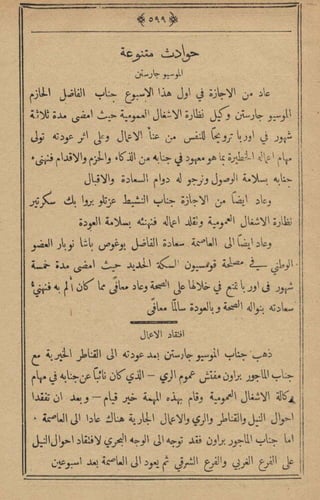 ﴿٥٩٩﴾
حوادث متنوعة
الموسيو جارستن
عاد من الاجازة في اول هذا الاسبوع جناب الفاضل الحازم
الموسيو جارستن وكيل نظارة الاشغال العمومية حيث امضى مدة ثلاثة
شهور في اوربا ترويحًا للنفس من عنأ الاعمال وعلى اثر عودته تولى
مهام اعماله الخطيرة بما هو معهود في جنابه من الذكاء والحزم والاقدام فنهنىء
جنابه بسلامة الوصول ونرجو له دوام السعادة والاقبال
وعاد ايضًا من الاجازة جناب النشيط عزتلو بروا بك سكرتير
نظارة الاشغال العمومية وتقلد اعماله فنهنئه بسلامة العودة
وعاد ايضًا الى العاصمة سعادة الفاضل يوغوص باشا نوبار العضو
الوطني في مصلحة قومسيون السكة الحديد حيث امضى مدة خمسة
شهور في اوربا تمتع في خلالها على الصحة وعاد معافى مما كان ألم به فنهنئ
سعادته بنواله الصحة وبالعودة سالمًا معافًى
افتقاد الاعمال
ذهب جناب الموسيو جارستن بعد عودته الى القناطر الخيرية مع
جناب الماجور براون مفتش عموم الري – الذي كان نائبًا عن جنابه في مهام
كالة الاشغال العمومية وقام بهذه المهمة خير قيام – وبعد ان تفقدا
احوال النيل والقناطر والري والاعمال الجارية هناك عادا الى العاصمة ٠
اما جناب الماجور براون فقد توجه الى الوجه البحري لافتقاد احوال النيل
على الفرع الغربي والفرع الشرقي ثم يعود الى العاصمة بعد اسبوعين